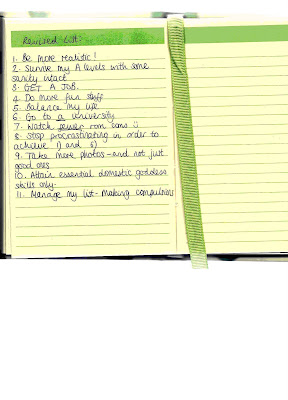 Revised List:
1. Be more realistic!
2. Survive my A levels with some
sanity intact
3. GET A JOB.
4. Do more fun stuff
5. Balance my life.
6. Go to a university
7. Watch fewer rom coms
8. Stop procrastinating in order to
achieve 1) and 6)
9. Take more photos - and not just
good ones
10. Attain essential domestic goddess
skills only.
11. Manage my list-making compulsions